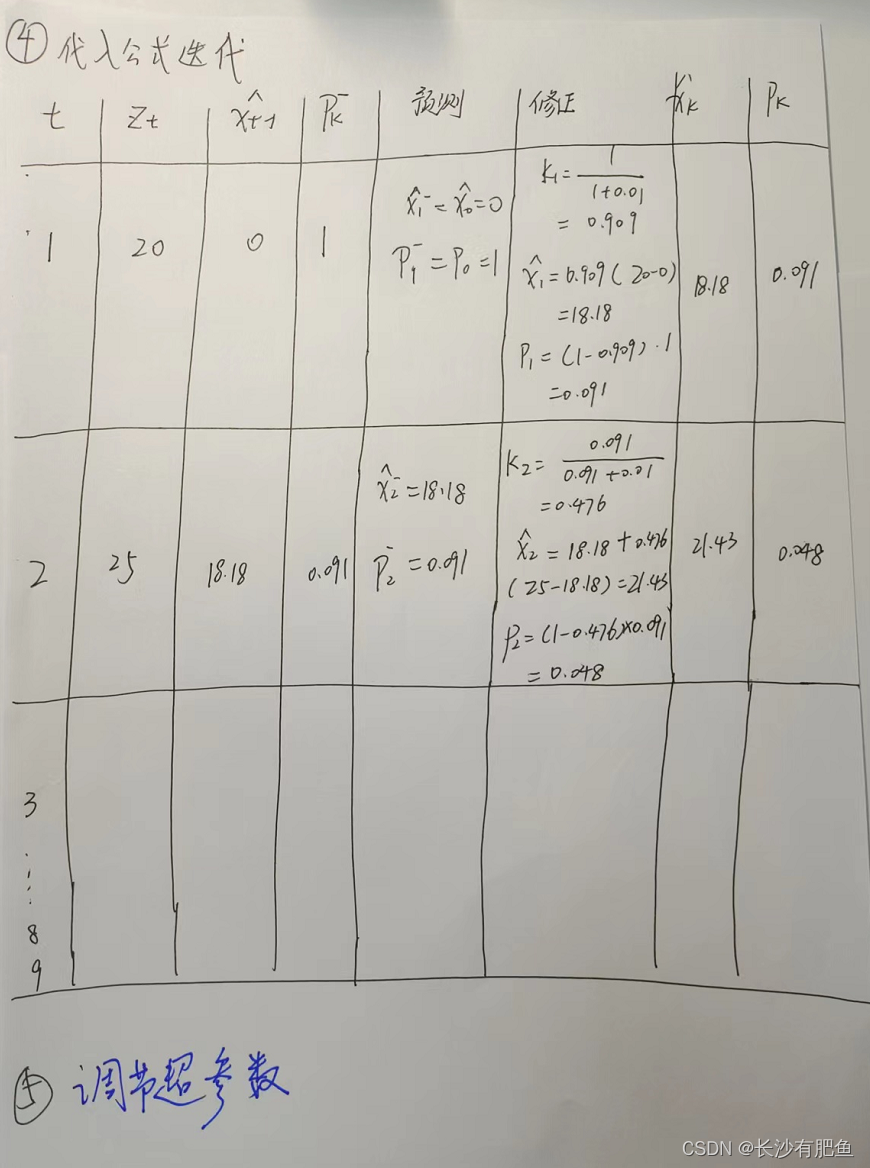 ④ 代入公式迭代
t Zt x̂t-1 Pₖ⁻ 预测 修正 x̂ₖ Pₖ
1 20 0 1
x̂₁⁻ = x̂₀ = 0
P₁⁻ = P₀ = 1
K₁ = 1 / (1+0.01)
= 0.909
x̂₁ = 0.909 ( 20-0)
= 18.18
P₁ = (1-0.909) · 1
= 0.091
18.18 0.091
2 25 18.18 0.091
x̂₂⁻ = 18.18
P₂⁻ = 0.091
K₂ = 0.091 / (0.091+0.01)
= 0.476
x̂₂ = 18.18 + 0.476
(25-18.18) = 21.43
P₂ = (1-0.476)×0.091
= 0.048
21.43 0.048
3
⋮
8
9
⑤ 调节超参数
CSDN @长沙有肥鱼